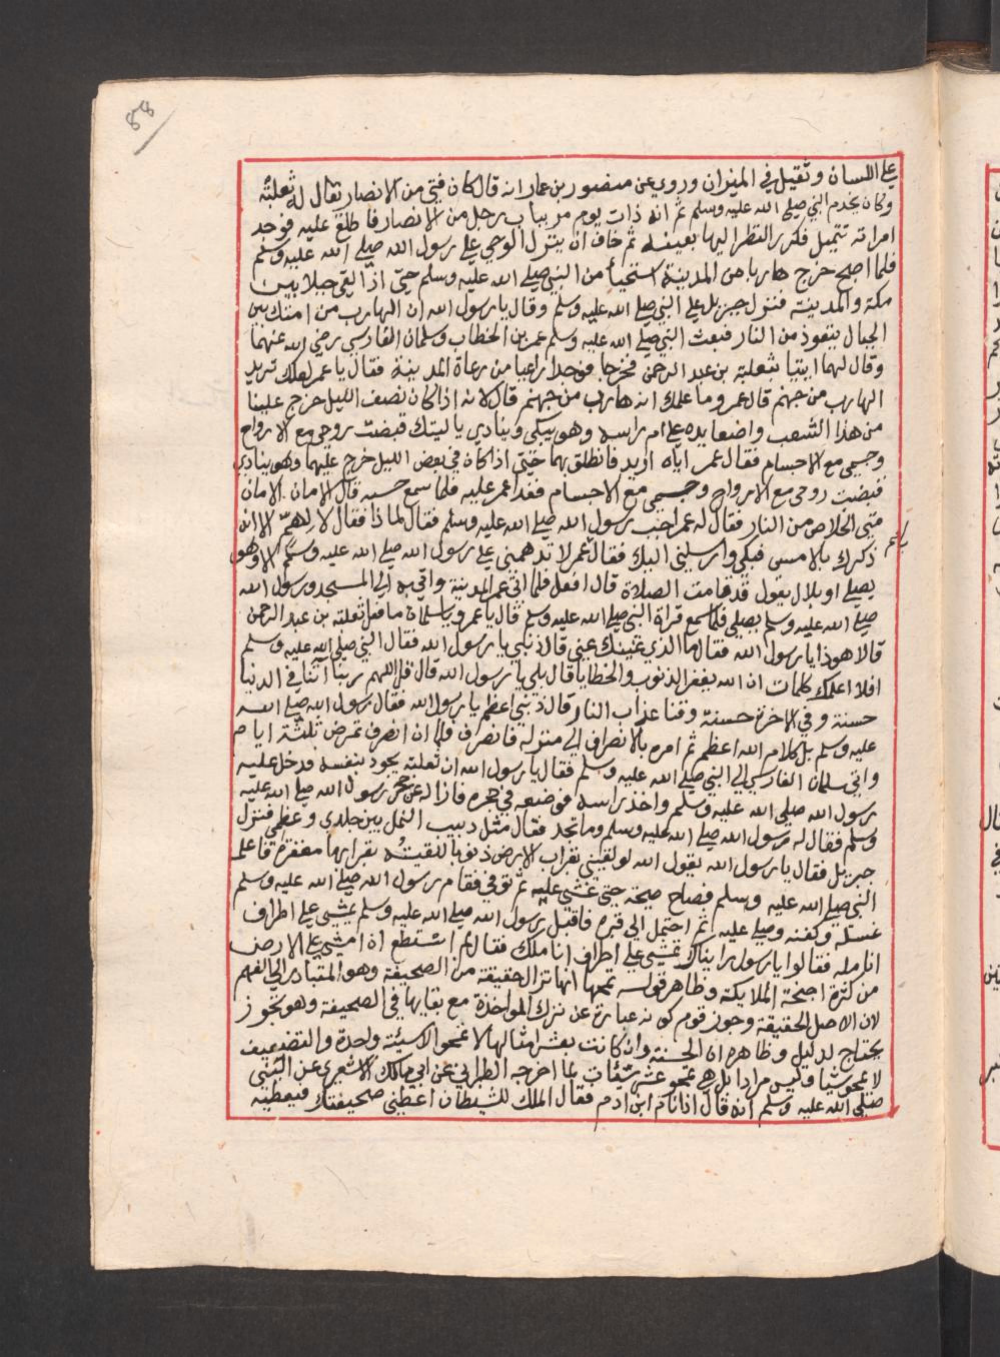 88
على اللسان وثقيل في الميزان وروي عن منصور بن عمار انه قال كان فتى من الانصار يقال له ثعلبة
وكان يخدم النبي صلى الله عليه وسلم ثم انه ذات يوم مر بباب رجل من الانصار فاطلع عليه فوجد
امراته تغتسل فكرر النظر اليها بعينه ثم خاف ان ينزل الوحي على رسول الله صلى الله عليه وسلم
فلما اصبح خرج هاربا من المدينة استحياء من النبي صلى الله عليه وسلم حتى اذا لقى جبلا بين
مكة والمدينة فنزل جبريل على النبي صلى الله عليه وسلم وقال يا رسول الله ان الهارب من امتك بين
الجبال يتعوذ من النار فبعث النبي صلى الله عليه وسلم عمر بن الخطاب وسلمان الفارسي رضي الله عنهما
وقال لهما ايتيا ثعلبة بن عبد الرحمن فخرجا فوجدا راعيا من رعاة المدينة فقال يا عمر لعلك تريد
الهارب من جهنم قال عمر وما علمك انه هارب من جهنم قال لانه اذا كان نصف الليل خرج علينا
من هذا الشعب واضعا يده على ام راسه وهو يبكي وينادي يا ليتك قبضت روحي مع الارواح
وجسمي مع الاجسام فقال عمر اياه اريد فانطلق بهما حتى اذا كان في بعض الليل خرج عليهما وهو ينادي
قبضت روحي مع الارواح وجسمي مع الاجسام فغدا عمر عليه فلما سمع حسه قال الامان الامان
متى الخلاص من النار فقال له عمر اجب رسول الله صلى الله عليه وسلم فقال لماذا فقال لا الا انه
ذكرك بالامس فبكى وارسلني اليك فقال عمر لا تدخلني على رسول الله صلى الله عليه وسلم الا وهو
يصلي او بلال يقول قد قامت الصلاة قال افعل فلما اتى عمر المدينة واتى به الى المسجد ورسول الله
صلى الله عليه وسلم يصلي فلما سمع قراة النبي صلى الله عليه وسلم قال يا عمر ويا سلمان ما فعل ثعلبة بن عبد الرحمن
قالا هو ذا يا رسول الله فقال ما الذي غيبك عني قال ذنبي يا رسول الله فقال النبي صلى الله عليه وسلم
افلا اعلمك كلمات ان الله يغفر الذنوب والخطايا قال بلى يا رسول الله قال قل اللهم ربنا آتنا في الدنيا
حسنة وفي الاخرة حسنة وقنا عذاب النار قال ذنبي اعظم يا رسول الله فقال رسول الله صلى الله
عليه وسلم بل كلام الله اعظم ثم امره بالانصراف الى منزله فانصرف فلما ان انصرف تمرض ثلثة ايام
واتى سلمان الفارسي الى النبي صلى الله عليه وسلم فقال يا رسول الله ان ثعلبة يجود بنفسه فدخل عليه
رسول الله صلى الله عليه وسلم واخذ راسه فوضعه في حجره فازاله عن حجر رسول الله صلى الله عليه
وسلم فقال له رسول الله صلى الله عليه وسلم وما تجد فقال مثل دبيب النمل بين جلدي وعظمي فنزل
جبريل فقال يا رسول الله يقول الله لو لقيني بقراب الارض ذنوبا للقيته بقرابها مغفرة فاعلمه
النبي صلى الله عليه وسلم فصاح صيحة حتى غشي عليه ثم توفي فقام رسول الله صلى الله عليه وسلم
غسله وكفنه وصلى عليه ثم احتمل الى قبره فاقبل رسول الله صلى الله عليه وسلم يمشي على اطراف
انامله فقالوا يا رسول رايناك تمشي على اطراف اناملك فقال لم استطع ان امشي على الارض
من كثرة اجنحة الملايكة وظاهر قوله تمحها انها تزال حقيقة من الصحيفة وهو المتبادر الى الفهم
لان الاصل الحقيقة وجوز قوم كونه عبارة عن ترك المواخذة مع بقايها في الصحيفة وهو تجوز
يحتاج لدليل وظاهره ان الحسنة وان كانت بعشر امثالها لا تمحو الا سيئة واحدة والتضعيف
لا يمحو شيا وليس مرادا بل هي تمحو عشر سيئات لما اخرجه الطبراني عن ابي مالك الاشعري عن النبي
صلى الله عليه وسلم انه قال اذا نام ابن ادم فقال الملك للشيطان اعطني صحيفتك فيعطيه